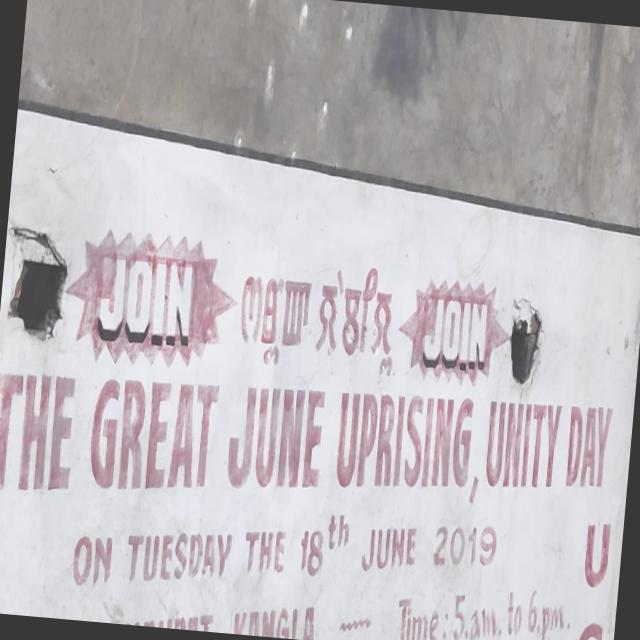 JOIN JOIN
THE GREAT JUNE UPRISING, UNITY DAY
ON TUESDAY THE 18th JUNE 2019
U
KANGLA ---- Time: 5.a.m. to 6.p.m.